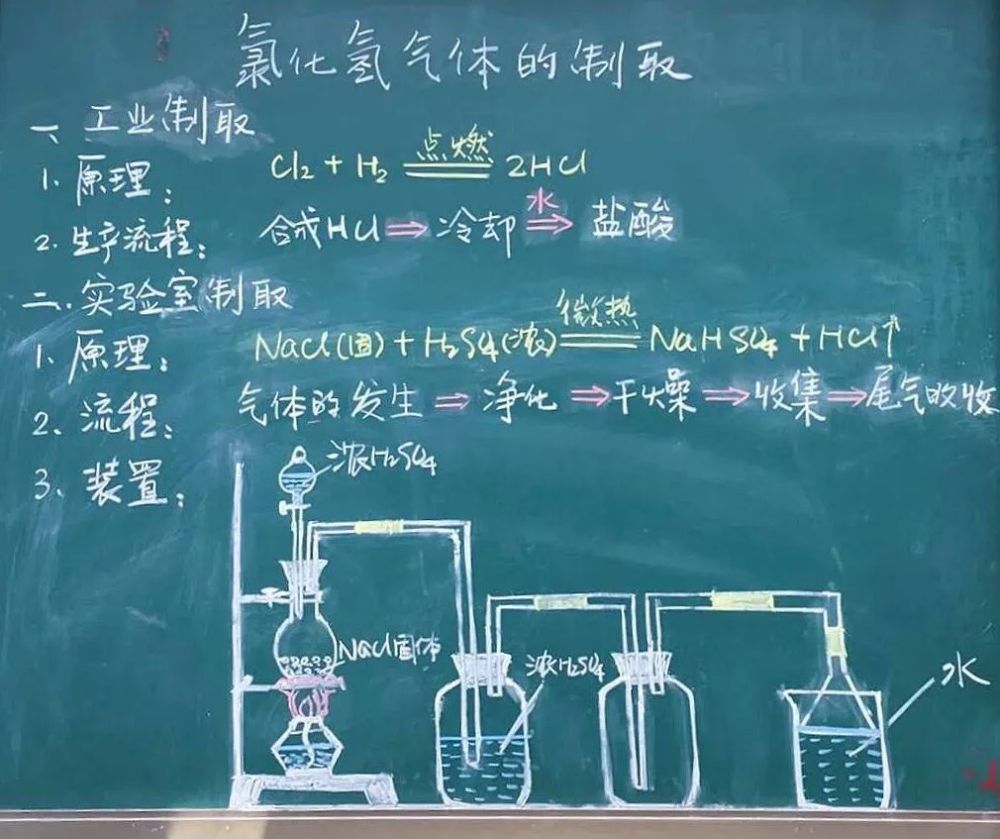 氯化氢气体的制取
一、工业制取
1. 原理: Cl₂ + H₂ 点燃 2HCl
2. 生产流程: 合成HCl ⇒ 冷却 水 ⇒ 盐酸
二. 实验室制取
1. 原理: NaCl(固) + H₂SO₄(浓) 微热 NaHSO₄ + HCl↑
2、流程: 气体的发生 ⇒ 净化 ⇒ 干燥 ⇒ 收集 ⇒ 尾气吸收
3、装置:
浓H₂SO₄
NaCl固体
浓H₂SO₄
水